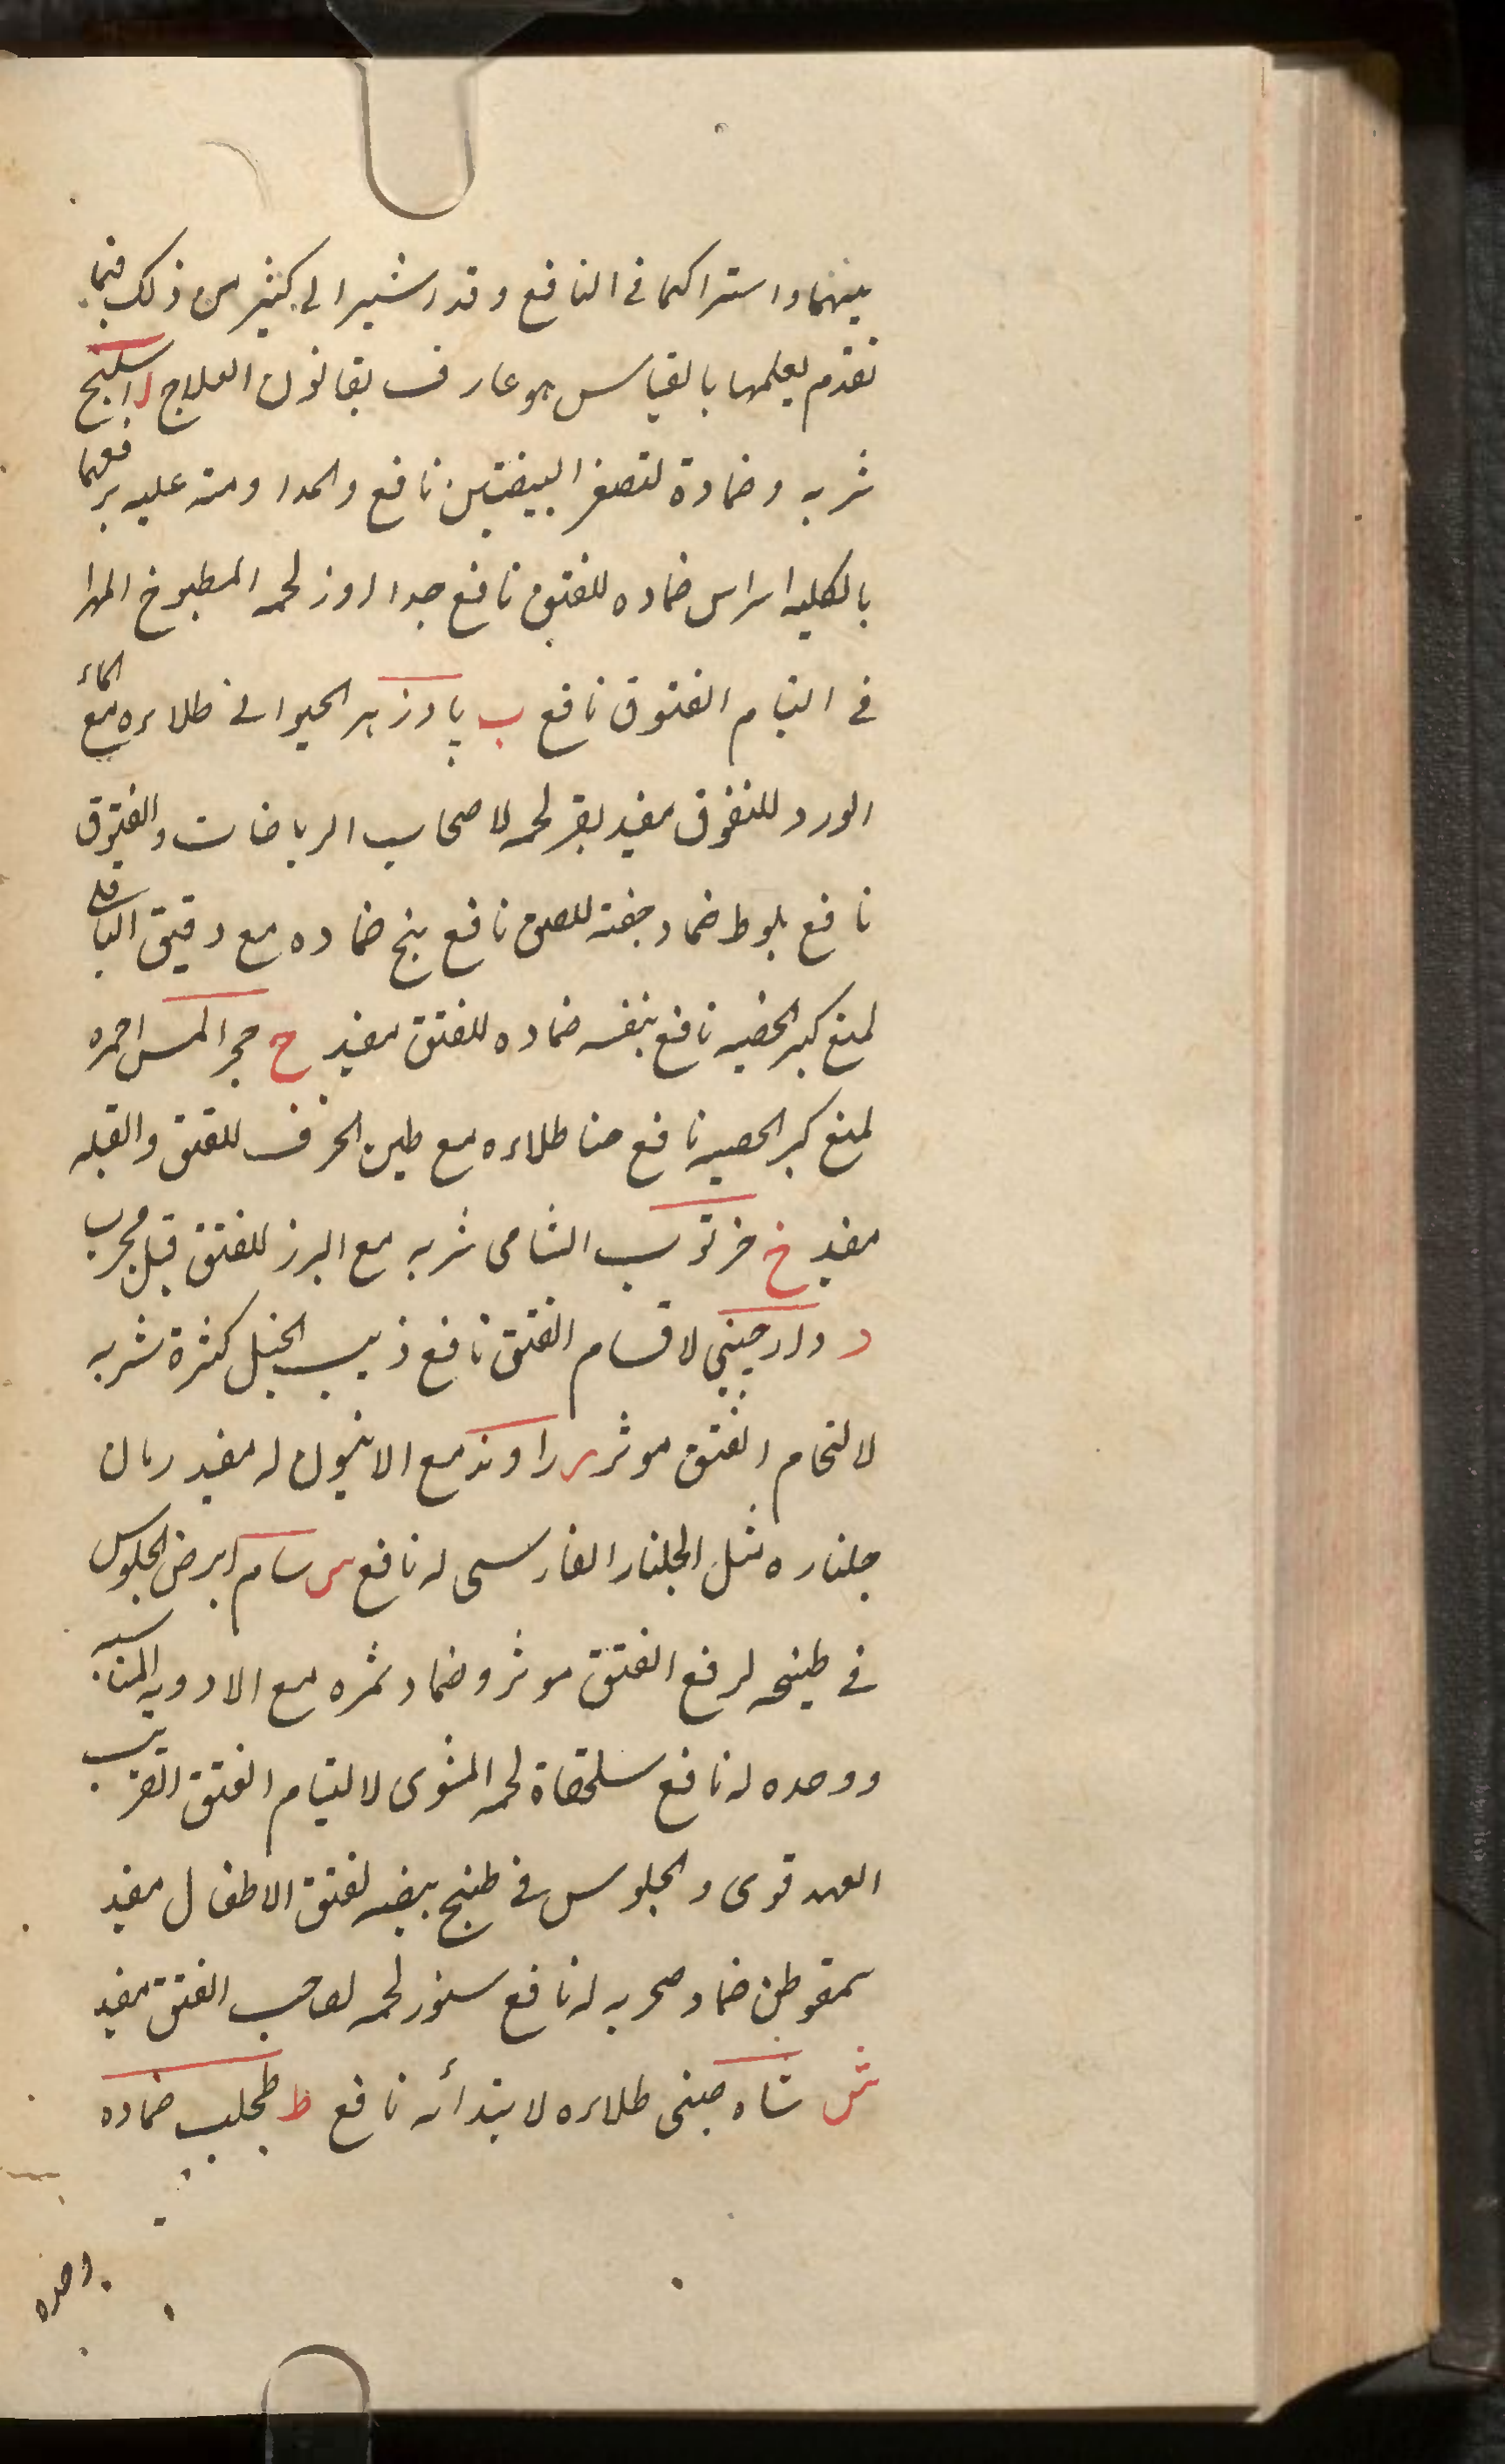 بينهما واشتراكهما فى النافع وقد اشير الى كثير من ذلك فيما
تقدم يعلمها بالقياس هو عارف بقانون العلاج ا اسكبينج
شربه وضماده لتصغر البيضتين نافع والمداومة عليه يرفعهما
بالكليه اسراس ضماده للفتق نافع جدا اوز لحمه المطبوخ المهرا
فى التيام الفتوق نافع ب پادزهر الحيوانى طلاءه مع الماء
الورد للفتوق مفيد بقر لحمه لاصحاب الرياضات والفتوق
نافع بلوط ضماد جفته للفتق نافع بنج ضماده مع دقيق الباقلى
لمنع كبر الخصيه نافع بنفسه ضماده للفتق مفيد ح حجر المسن احمره
لمنع كبر الخصيه نافع حنا طلاءه مع طين الخزف للفتق والقيله
مفيد خ خرنوب الشامى شربه مع البزر للفتق قيل مجرب
د دارچينى لاقسام الفتق نافع ذنب الخيل كثرة شربه
لالتحام الفتق موثر ر راوند مع الانيسون له مفيد رمان
جلناره مثل الجلنار الفارسى له نافع س سام ابرص الجلوس
فى طبيخه لرفع الفتق موثر وضماد ثمره مع الادويه المناسبه
ووحده له نافع سلحفاة لحمه المشوى لالتيام الفتق القريب
العهد قوى والجلوس فى طبيخ بيضه لفتق الاطفال مفيد
سمقوطن ضماد له نافع سنور لحمه لصاحب الفتق مفيد
ش شاه چينى طلاءه لابتدائه نافع ط طحلب ضماده
وحده